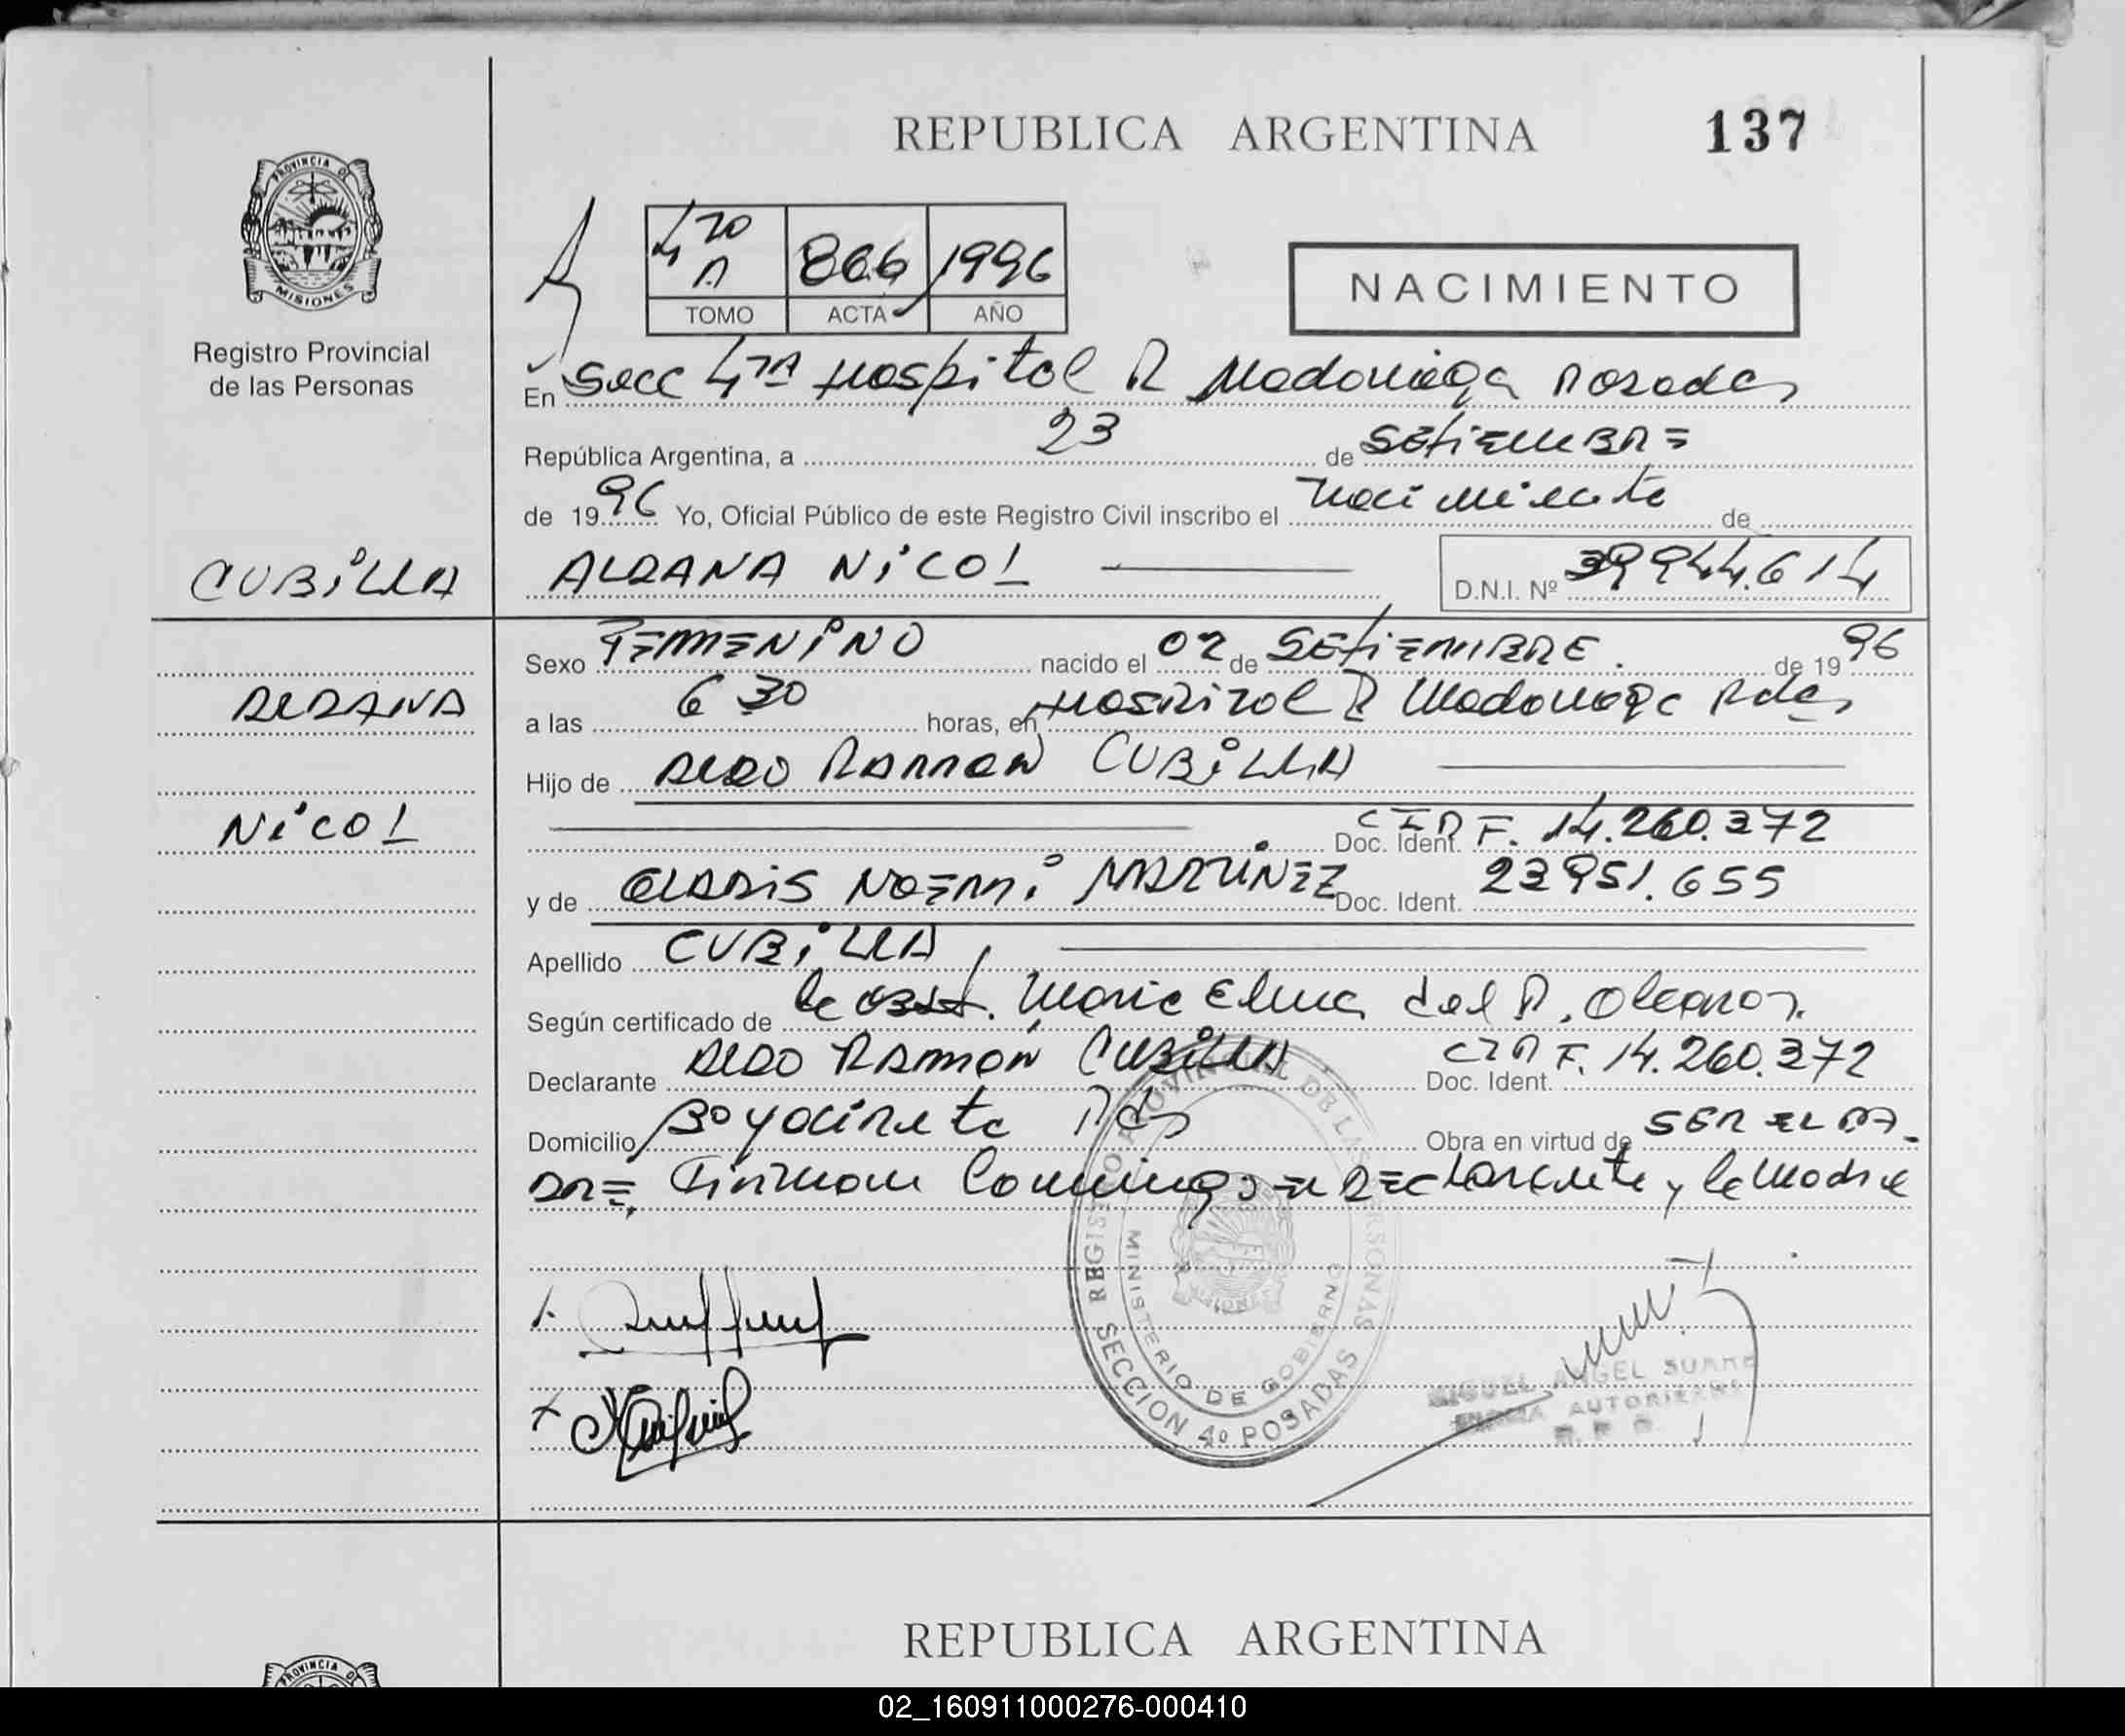 REPUBLICA ARGENTINA
137
PROVINCIA DE
MISIONES
Registro Provincial
de las Personas
4TO A 866 1996
TOMO ACTA AÑO
NACIMIENTO
En Secc 4TA Hospital R Madariaga Posadas
República Argentina, a 23 de SETIEMBRE
de 1996 Yo, Oficial Público de este Registro Civil inscribo el nacimiento de
CUBILLA
ALDANA NICOL D.N.I. Nº 39944.614
Sexo FEMENINO nacido el 02 de SETIEMBRE. de 1996
ALDANA
a las 6 30 horas, en Hospital R Madariaga Pdas
Hijo de ALDO RAMON CUBILLA
NICOL
Doc. Ident. F. 14.260.372
y de GLADIS NOEMI MARTINEZ Doc. Ident. 23951.655
Apellido CUBILLA
Según certificado de la OBST. Maria Elena del R.
Declarante ALDO RAMON CUBILLA Doc. Ident. F. 14.260.372
Domicilio B° Yacireta Pdas Obra en virtud de SER EL PA-
DRE, Firman Conmigo EL DECLARANTE y la Madre
REGISTRO PROVINCIAL DE LAS PERSONAS
MINISTERIO DE GOBIERNO
SECCION 4º POSADAS
MIGUEL ANGEL
REPUBLICA ARGENTINA
PROVINCIA DE
02_160911000276-000410